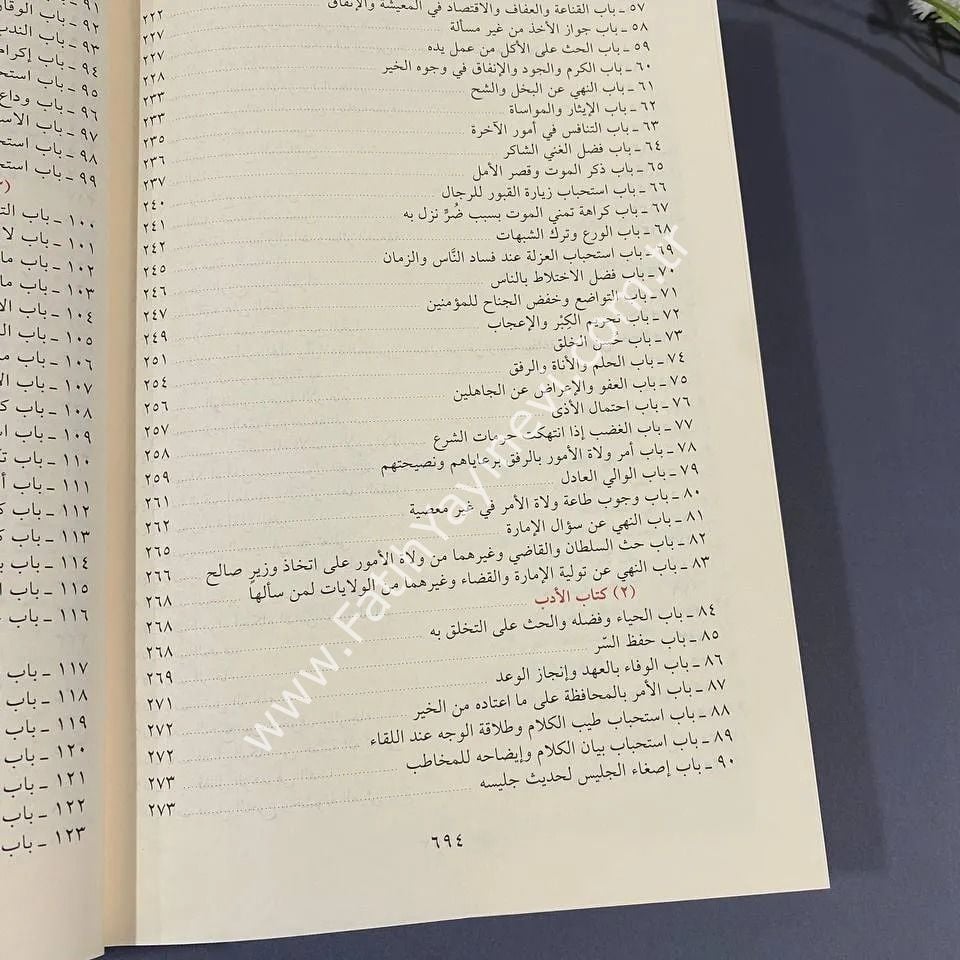 ٥٧ ـ باب القناعة والعفاف والاقتصاد في المعيشة والإنفاق ٢٢٢
٥٨ ـ باب جواز الأخذ من غير مسألة ٢٢٧
٥٩ ـ باب الحث على الأكل من عمل يده ٢٢٧
٦٠ ـ باب الكرم والجود والإنفاق في وجوه الخير ٢٢٨
٦١ ـ باب النهي عن البخل والشح ٢٣٣
٦٢ ـ باب الإيثار والمواساة ٢٣٣
٦٣ ـ باب التنافس في أمور الآخرة ٢٣٥
٦٤ ـ باب فضل الغني الشاكر ٢٣٦
٦٥ ـ باب ذكر الموت وقصر الأمل ٢٣٧
٦٦ ـ باب استحباب زيارة القبور للرجال ٢٤٠
٦٧ ـ باب كراهة تمني الموت بسبب ضُرٍّ نزل به ٢٤١
٦٨ ـ باب الورع وترك الشبهات ٢٤٢
٦٩ ـ باب استحباب العزلة عند فساد النَّاس والزمان ٢٤٥
٧٠ ـ باب فضل الاختلاط بالناس ٢٤٦
٧١ ـ باب التواضع وخفض الجناح للمؤمنين ٢٤٧
٧٢ ـ باب تحريم الكِبْر والإعجاب ٢٤٩
٧٣ ـ باب حسن الخلق ٢٥١
٧٤ ـ باب الحلم والأناة والرفق ٢٥٤
٧٥ ـ باب العفو والإعراض عن الجاهلين ٢٥٦
٧٦ ـ باب احتمال الأذى ٢٥٧
٧٧ ـ باب الغضب إذا انتهكت حرمات الشرع ٢٥٨
٧٨ ـ باب أمر ولاة الأمور بالرفق برعاياهم ونصيحتهم ٢٥٩
٧٩ ـ باب الوالي العادل ٢٦١
٨٠ ـ باب وجوب طاعة ولاة الأمر في غير معصية ٢٦٢
٨١ ـ باب النهي عن سؤال الإمارة ٢٦٥
٨٢ ـ باب حث السلطان والقاضي وغيرهما من ولاة الأمور على اتخاذ وزيرٍ صالح ٢٦٦
٨٣ ـ باب النهي عن تولية الإمارة والقضاء وغيرهما من الولايات لمن سألها ٢٦٨
(٢) كتاب الأدب ٢٦٨
٨٤ ـ باب الحياء وفضله والحث على التخلق به ٢٦٨
٨٥ ـ باب حفظ السّر ٢٦٩
٨٦ ـ باب الوفاء بالعهد وإنجاز الوعد ٢٧١
٨٧ ـ باب الأمر بالمحافظة على ما اعتاده من الخير ٢٧٢
٨٨ ـ باب استحباب طيب الكلام وطلاقة الوجه عند اللقاء ٢٧٢
٨٩ ـ باب استحباب بيان الكلام وإيضاحه للمخاطب ٢٧٣
٩٠ ـ باب إصغاء الجليس لحديث جليسه ٢٧٣
٦٩٤
٩١ ـ باب
٩٢ ـ باب
٩٣ ـ باب
٩٤ ـ باب
٩٥ ـ باب
٩٦ ـ باب وداع
٩٧ ـ باب
٩٨ ـ باب
٩٩ ـ باب
١٠٠ ـ باب
١٠١ ـ باب لا
١٠٢ ـ باب ما
١٠٣ ـ باب ما
١٠٤ ـ باب
١٠٥ ـ باب
١٠٦ ـ باب
١٠٧ ـ باب
١٠٨ ـ باب
١٠٩ ـ باب
١١٠ ـ باب
١١١ ـ باب
١١٢ ـ باب
١١٣ ـ باب
١١٤ ـ باب
١١٥ ـ باب
١١٦ ـ باب
١١٧ ـ باب
١١٨ ـ باب
١١٩ ـ باب
١٢٠ ـ باب
١٢١ ـ باب
١٢٢ ـ باب
١٢٣ ـ باب
www.FatihYayinevi.com.tr